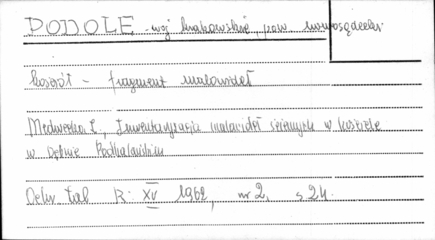 PODOLE - woj krakowskie, pow nowosądecki
kościół - fragment malowideł
Medwecka Z, Inwentaryzacja malowideł ściennych w kościele
w Dębnie Podhalańskim
Ochr. Zab R: XV 1962, nr 2, s 24.